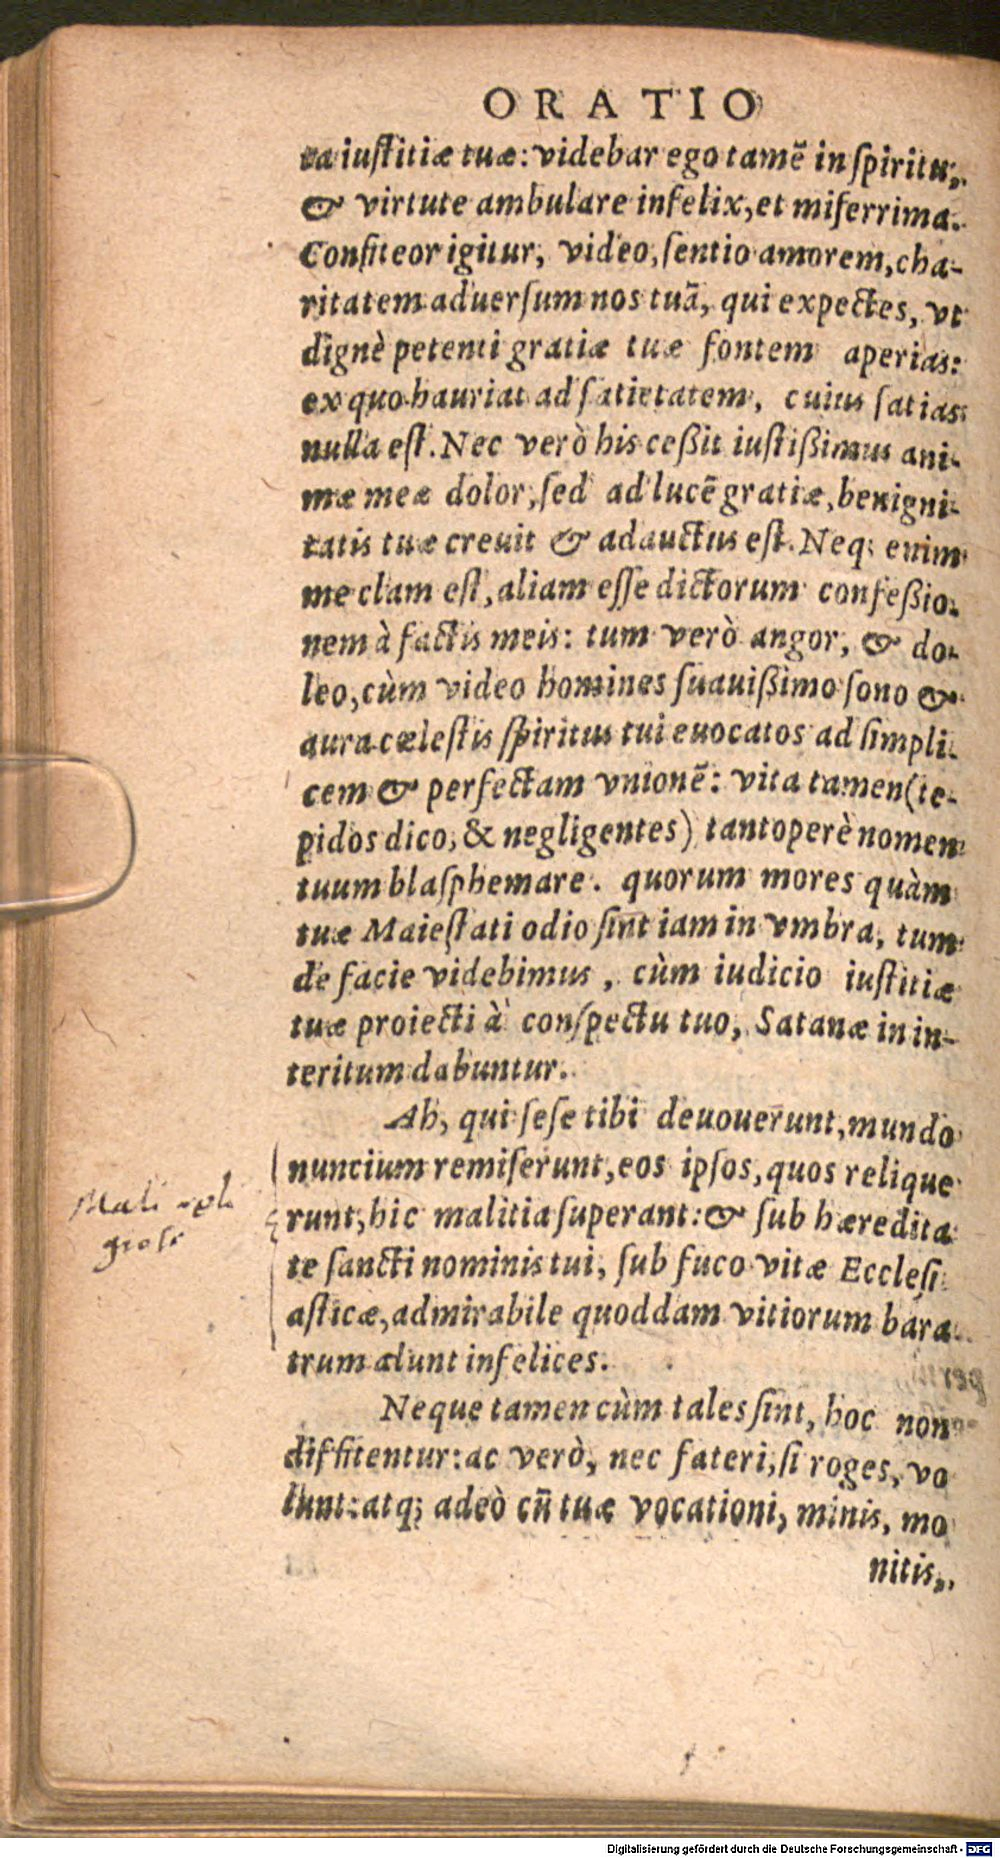 ORATIO
ea iustitiæ tuæ: videbar ego tamẽ in spiritu,
& virtute ambulare infelix, et miserrima.
Confiteor igitur, video, sentio amorem, cha-
ritatem aduersum nos tuã, qui expectes, vt
dignè petenti gratiæ tuæ fontem aperias:
ex quo hauriat ad satietatem, cuius satias
nulla est. Nec verò his ceßit iustißimus ani-
mæ meæ dolor, sed ad lucẽ gratiæ, benigni-
tatis tuæ creuit & adauctus est. Neq; enim
me clam est, aliam esse dictorum confeßio-
nem à factis meis: tum verò angor, & do-
leo, cùm video homines suauißimo sono &
aura cælestis spiritus tui euocatos ad simpli-
cem & perfectam vnionẽ: vita tamen (te-
pidos dico, & negligentes) tantoperè nomen
tuum blasphemare. quorum mores quàm
tuæ Maiestati odio sint iam in vmbra, tum
de facie videbimus, cùm iudicio iustitiæ
tuæ proiecti à conspectu tuo, Satanæ in in-
teritum dabuntur.
Ah, qui sese tibi deuouerunt, mundo
nuncium remiserunt, eos ipsos, quos relique
runt, hic malitia superant: & sub hæredita
te sancti nominis tui, sub fuco vitæ Ecclesi
asticæ, admirabile quoddam vitiorum bara
trum alunt infelices.
Neque tamen cùm tales sint, hoc non
diffitentur: ac verò, nec fateri, si roges, vo
lunt: atq; adeò cũ tuæ vocationi, minis, mo
nitis,
Mali reli
giosi
Digitalisierung gefördert durch die Deutsche Forschungsgemeinschaft - DFG